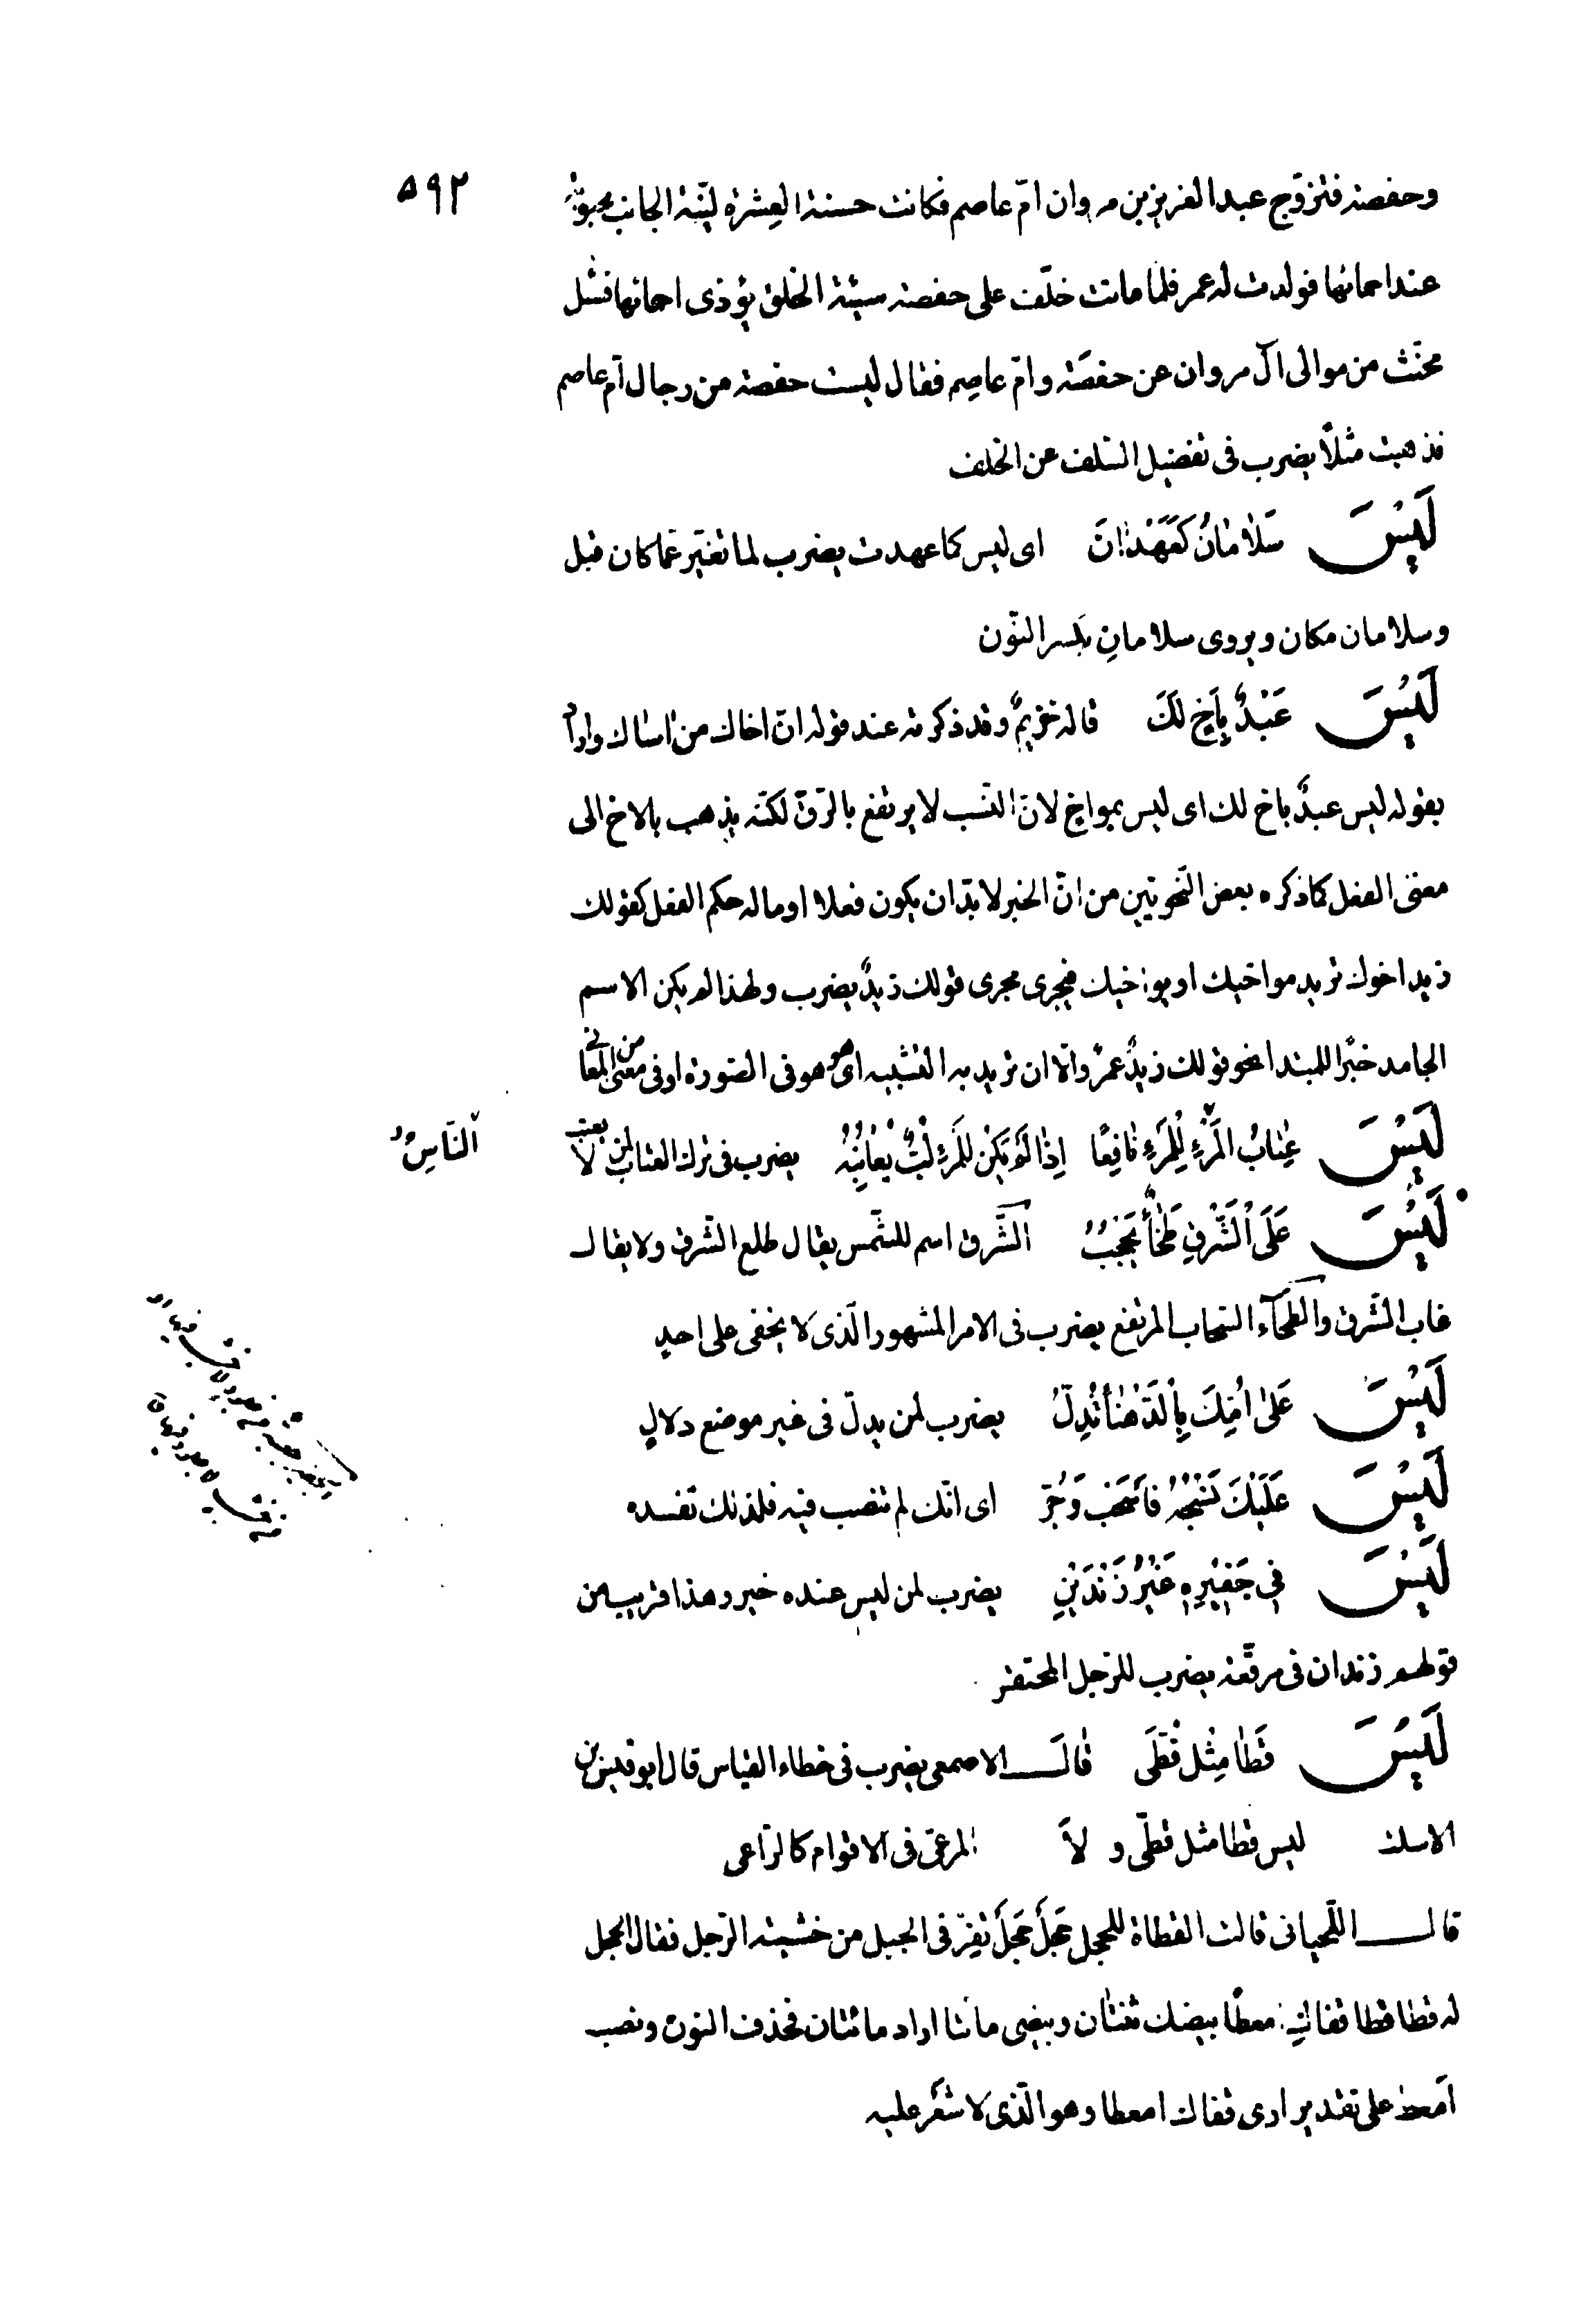 ٥٩٢
وحفصة فتزوّج عبد العزيز بن مروان امّ عاصم فكانت حسنة العِشرة ليّنة الجانب محبوبة
عند احمائها فولدت له عمر فلمّا ماتت خلّف على حفصة سيّئة الخلق يؤذى احمائها فسُئل
مخنّث من موالى آل مروان عن حفصَة وامّ عاصِم فقال ليست حفصة من رجال امّ عاصم
فذهبت مثلًا يضرب فى تفضيل السّلف عن الخلف
لَيْسَ سَلامَانُ كَعَهْدَانَ اى ليس كما عهدت يضرب لما تغيّر عمّا كان قبل
وسلامان مكان ويروى سلامانِ بكسر النّون
لَيْسَ عَبْدٌ بِاَخٍ لَكَ قاله خزيمٌ وقد ذكرته عند قوله انّ اخاك من اساك واراد
بقوله ليس عبدٌ باخ لك اى ليس بمواخٍ لانّ النّسب لا يرتفع بالرّقّ لكنّه يذهب بالاخ الى
معنى الفعل كما ذكره بعض النّحويّين من انّ الخبر لابدّ ان يكون فعلا او ما له حكم الفعل كقولك
زيد اخوك تريد مواخيك او يواخيك فيجرى مجرى قولك زيدٌ يضرب ولهذا لم يكن الاسم
الجامد خبرًا للمبتدا نحو قولك زيدٌ عمرٌو الّا ان تريد به التشبيه اى هو هو فى الصّورة او فى معنى من المعانى
لَيْسَ عِتابُ المَرْءِ لِلْمَرْءِ نافِعًا اِذا لَمْ يَكُنْ لِلْمَرْءِ لُبٌّ يُعاتِبُهُ يضرب فى ترك العتاب لمن لا يعتب
النّاسِ
لَيْسَ عَلَى الشَّرْقِ طَخَاءٌ يَحْجُبُ الشَّرق اسم للشّمس يقال طلع الشّرق ولا يقال
غاب الشّرق والطَّخآء السّحاب المرتفع يضرب فى الامر المشهور الّذى لا يخفى على احدٍ
لَيْسَ عَلىٰ اُمِّكَ بِالدَّهْنَا تُدِلُّ يضرب لمن يدلّ فى غير موضع دلالٍ
لَيْسَ عَلَيْكَ نَسْجُهُ فَاسْحَبْ وَجُرّ اى انّك لم تنصب فيه فلذلك تفسده
لَيْسَ فى جَفيْرِهِ غَيْرُ زَنْدَيْنِ يضرب لمن ليس عنده خير وهذا قريب من
قولهم زندان فى مرقّعة يضرب للرّجل المحتقر
لَيْسَ قَطا مِثْلَ قُطَىَّ قالَ الاصمعى يضرب فى خطاء القياس قال ابو قيس بن
الاسلت ليس قطا مثل قطىّ ولا المرعىّ فى الاقوام كالرّاعى
قال اللّحيانى قالت القطاة للحجل حَجَل حَجَل تفِرّ فى الجبل من خشية الرّجل فقال الحجل
له قطا قطا قفاكِ امعطا بيضك ثنتان وبيضى مائتا اراد مائتان فحذف النون ونصب
امعط على تقدير ارى قفاك امعطا وهو الّذى لا شعَر عليه